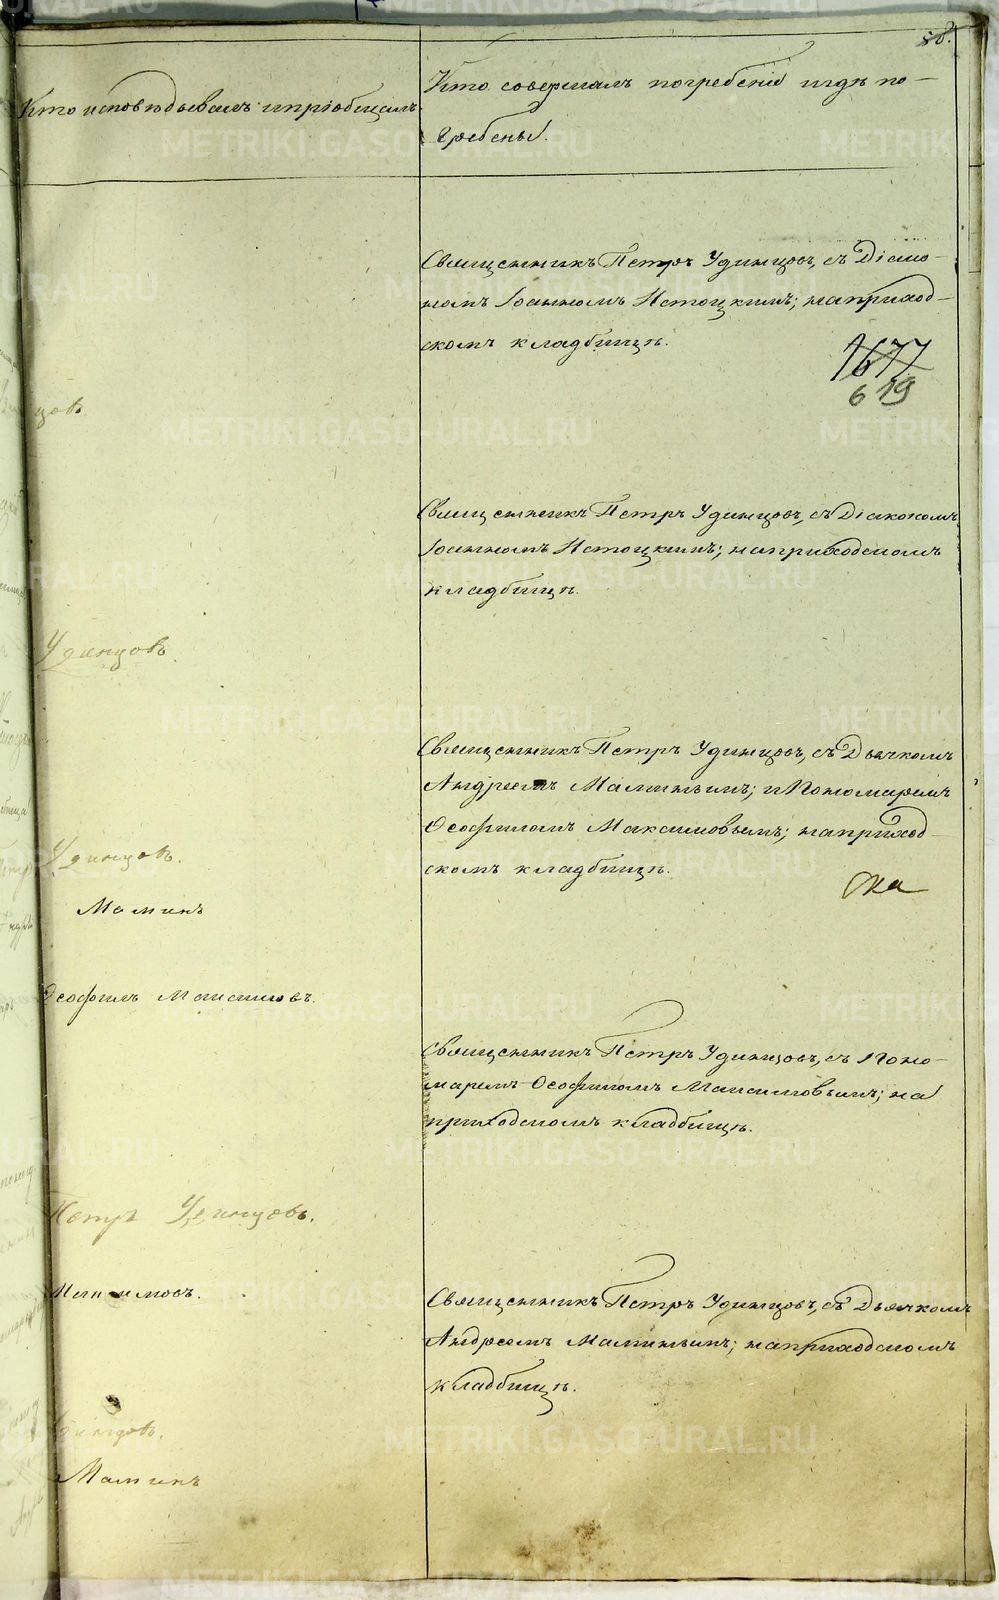 58.
Кто исповѣдывалъ и пріобщалъ.
Кто совершалъ погребеніе и гдѣ по-
гребены.
Священникъ Петръ Удинцовъ, съ Діако-
номъ Іоанномъ Истоцкимъ; на приход-
скомъ кладбищѣ.
1677
619
цовъ.
Священникъ Петръ Удинцовъ, съ Діакономъ
Іоанномъ Истоцкимъ; на приходскомъ
кладбищѣ.
Удинцовъ.
Священникъ Петръ Удинцовъ, съ Дьячкомъ
Андреемъ Маминымъ; и Пономаремъ
Ѳеофиломъ Максимовымъ; на приход-
скомъ кладбищѣ.
Удинцовъ.
Маминъ
Ѳеофилъ Максимовъ.
Священникъ Петръ Удинцовъ, съ Поно-
маремъ Ѳеофиломъ Максимовымъ; на
приходскомъ кладбищѣ.
Петръ Удинцовъ.
Максимовъ.
Священникъ Петръ Удинцовъ, съ Дьячкомъ
Андреемъ Маминымъ; на приходскомъ
кладбищѣ.
Удинцовъ.
Маминъ
METRIKI.GASO-URAL.RU